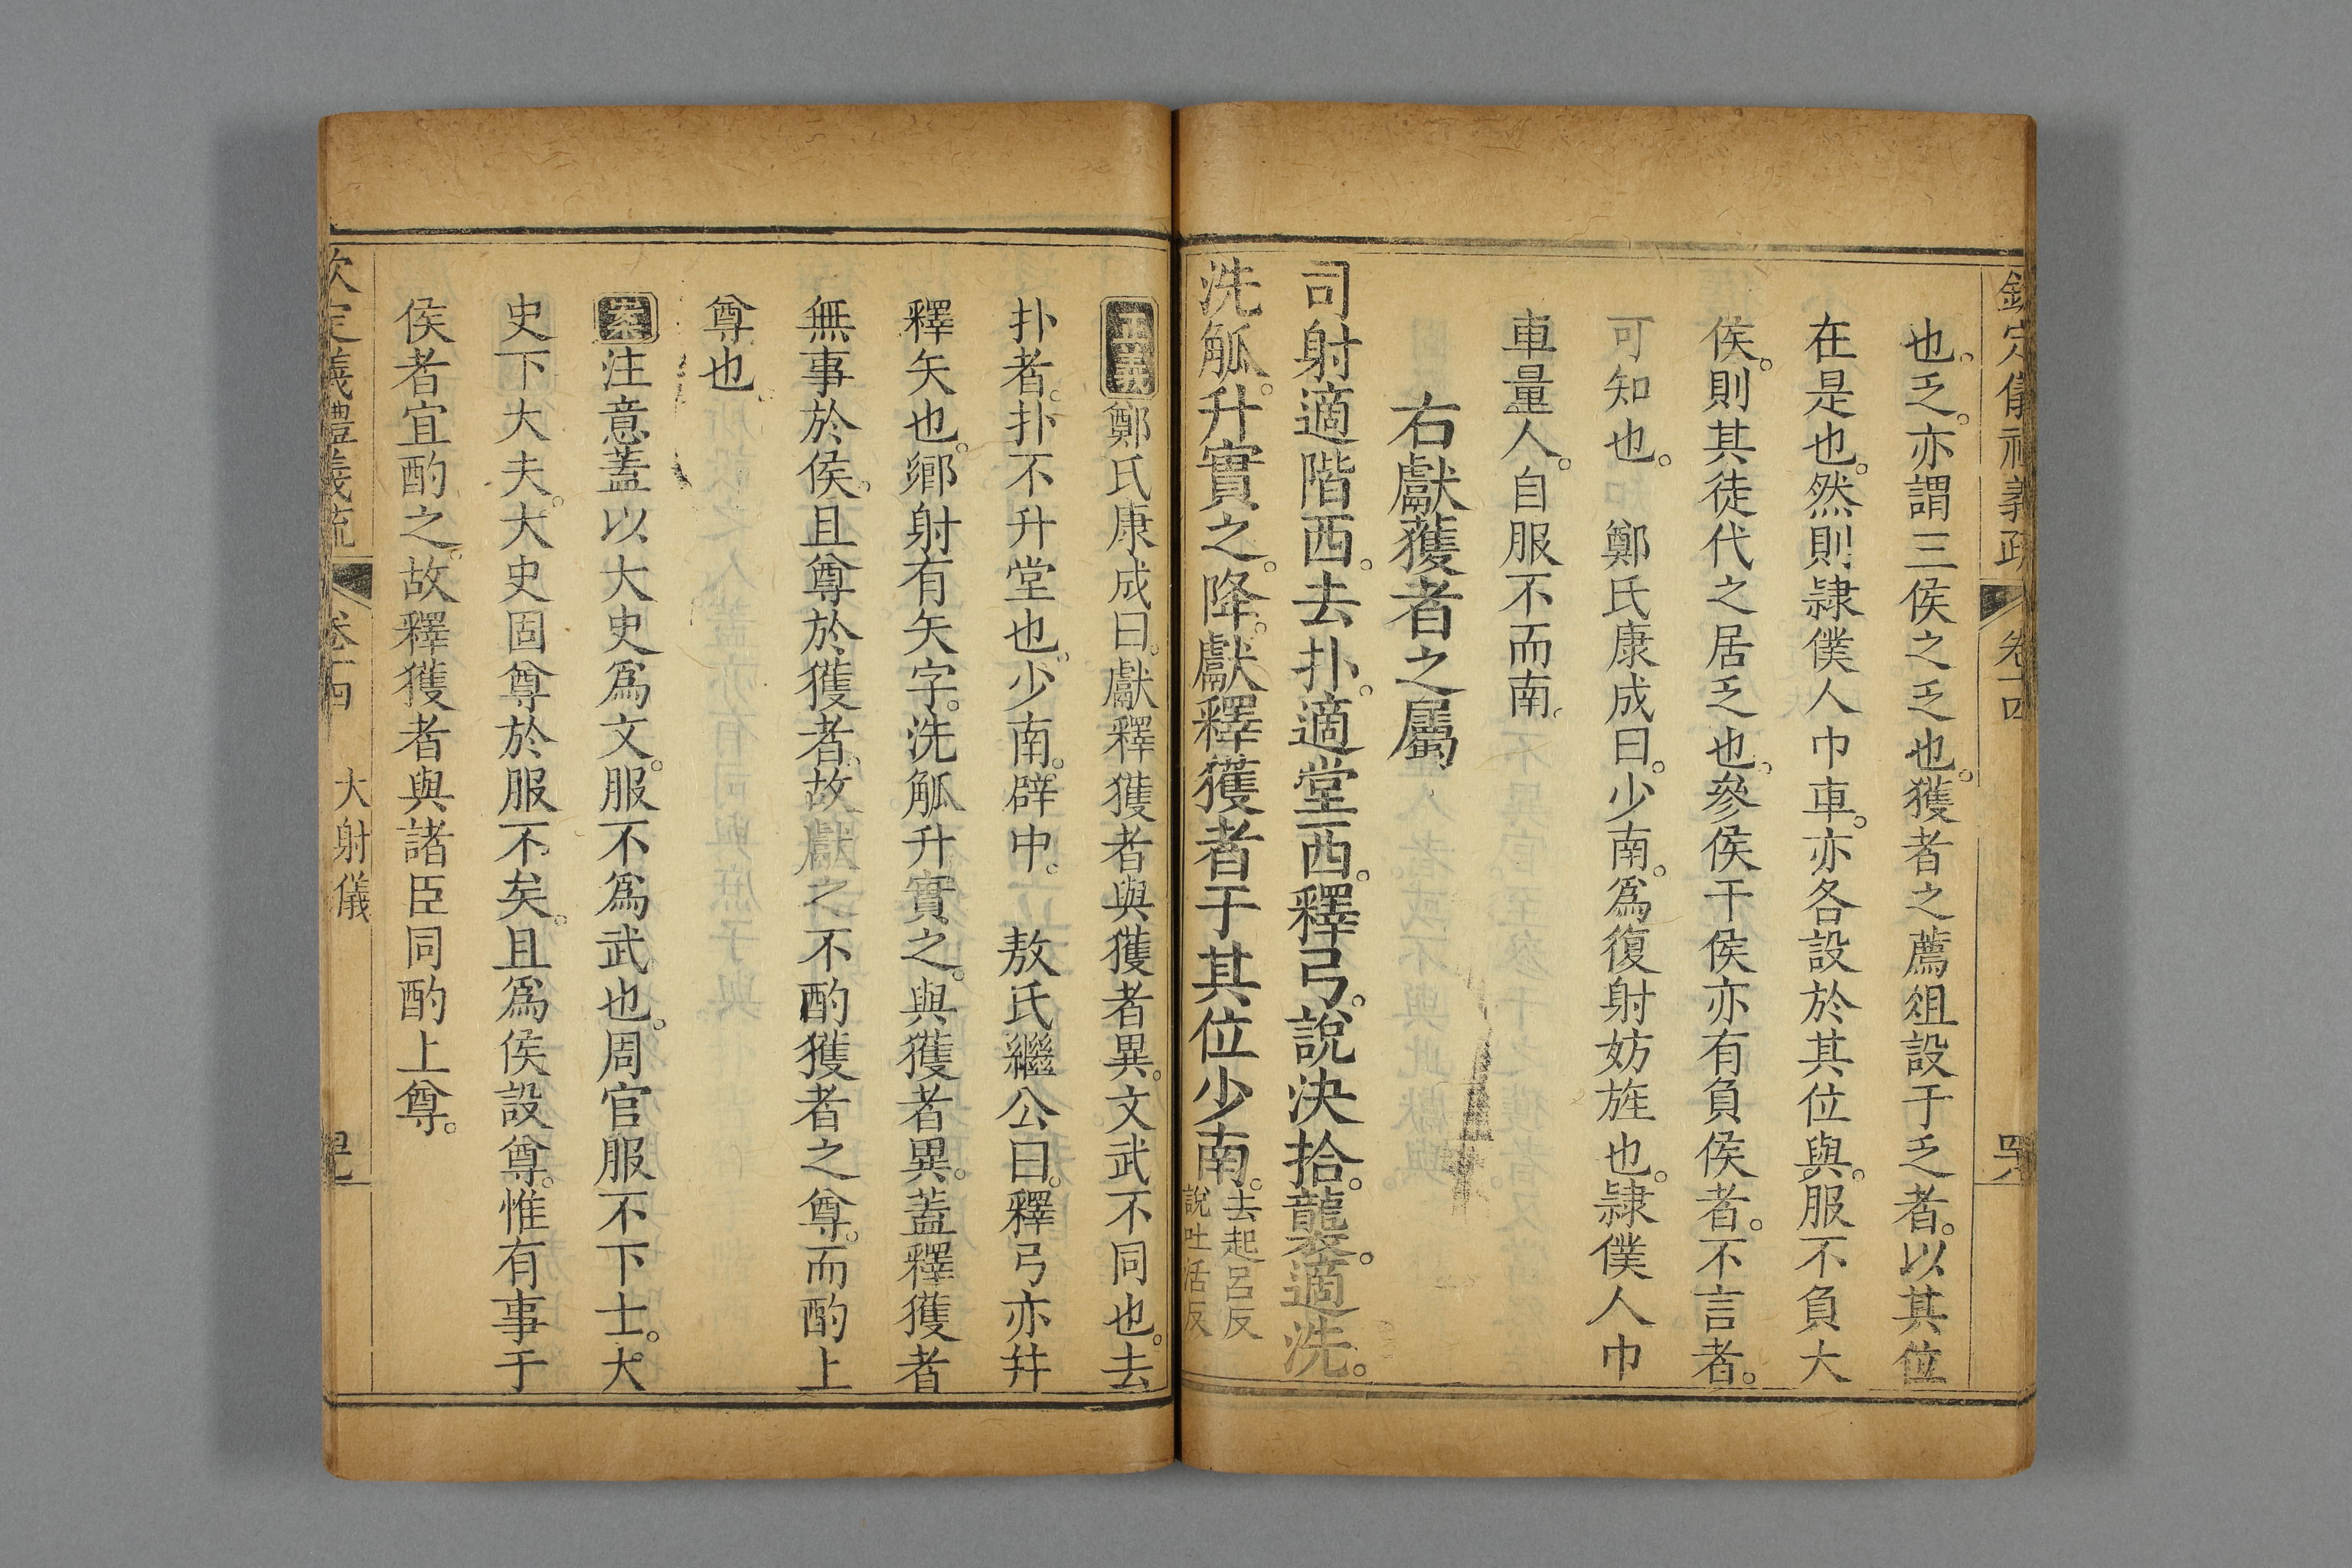 欽定儀禮義疏 卷十四 四八
也。乏。亦謂三侯之乏也。獲者之薦俎設于乏者。以其位
在是也。然則隷僕人巾車。亦各設於其位與。服不負大
侯。則其徒代之居乏也。參侯干侯亦有負侯者。不言者。
可知也。 鄭氏康成曰。少南。爲復射妨旌也。隷僕人巾
車量人。自服不而南。
右獻獲者之屬
司射適階西。去扑。適堂西。釋弓。說決拾。襲。適洗。
洗觚。升實之。降。獻釋獲者于其位少南。去起呂反
說吐活反
正義鄭氏康成曰。獻釋獲者與獲者異。文武不同也。去
扑者。扑不升堂也。少南。辟中。 敖氏繼公曰。釋弓亦幷
釋矢也。鄉射有矢字。洗觚升實之。與獲者異。蓋釋獲者
無事於侯。且尊於獲者。故獻之不酌獲者之尊。而酌上
尊也。
案注意蓋以大史爲文。服不爲武也。周官服不下士。大
史下大夫。大史固尊於服不矣。且爲侯設尊。惟有事于
侯者宜酌之。故釋獲者與諸臣同酌上尊。
欽定儀禮義疏 卷十四 大射儀 四九